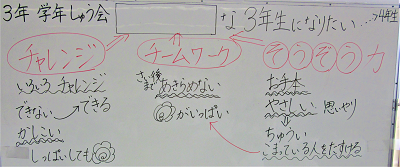 3年 学年しゅう会
な3年生になりたい…→4年生
チャレンジ
チームワーク
そうぞう力
いろいろチャレンジ
できない→できる
かしこい
しっぱいしても
さい後まで
あきらめない
がいっぱい
お手本
やさしい 思いやり
ちゅうい
こまっている人をたすける